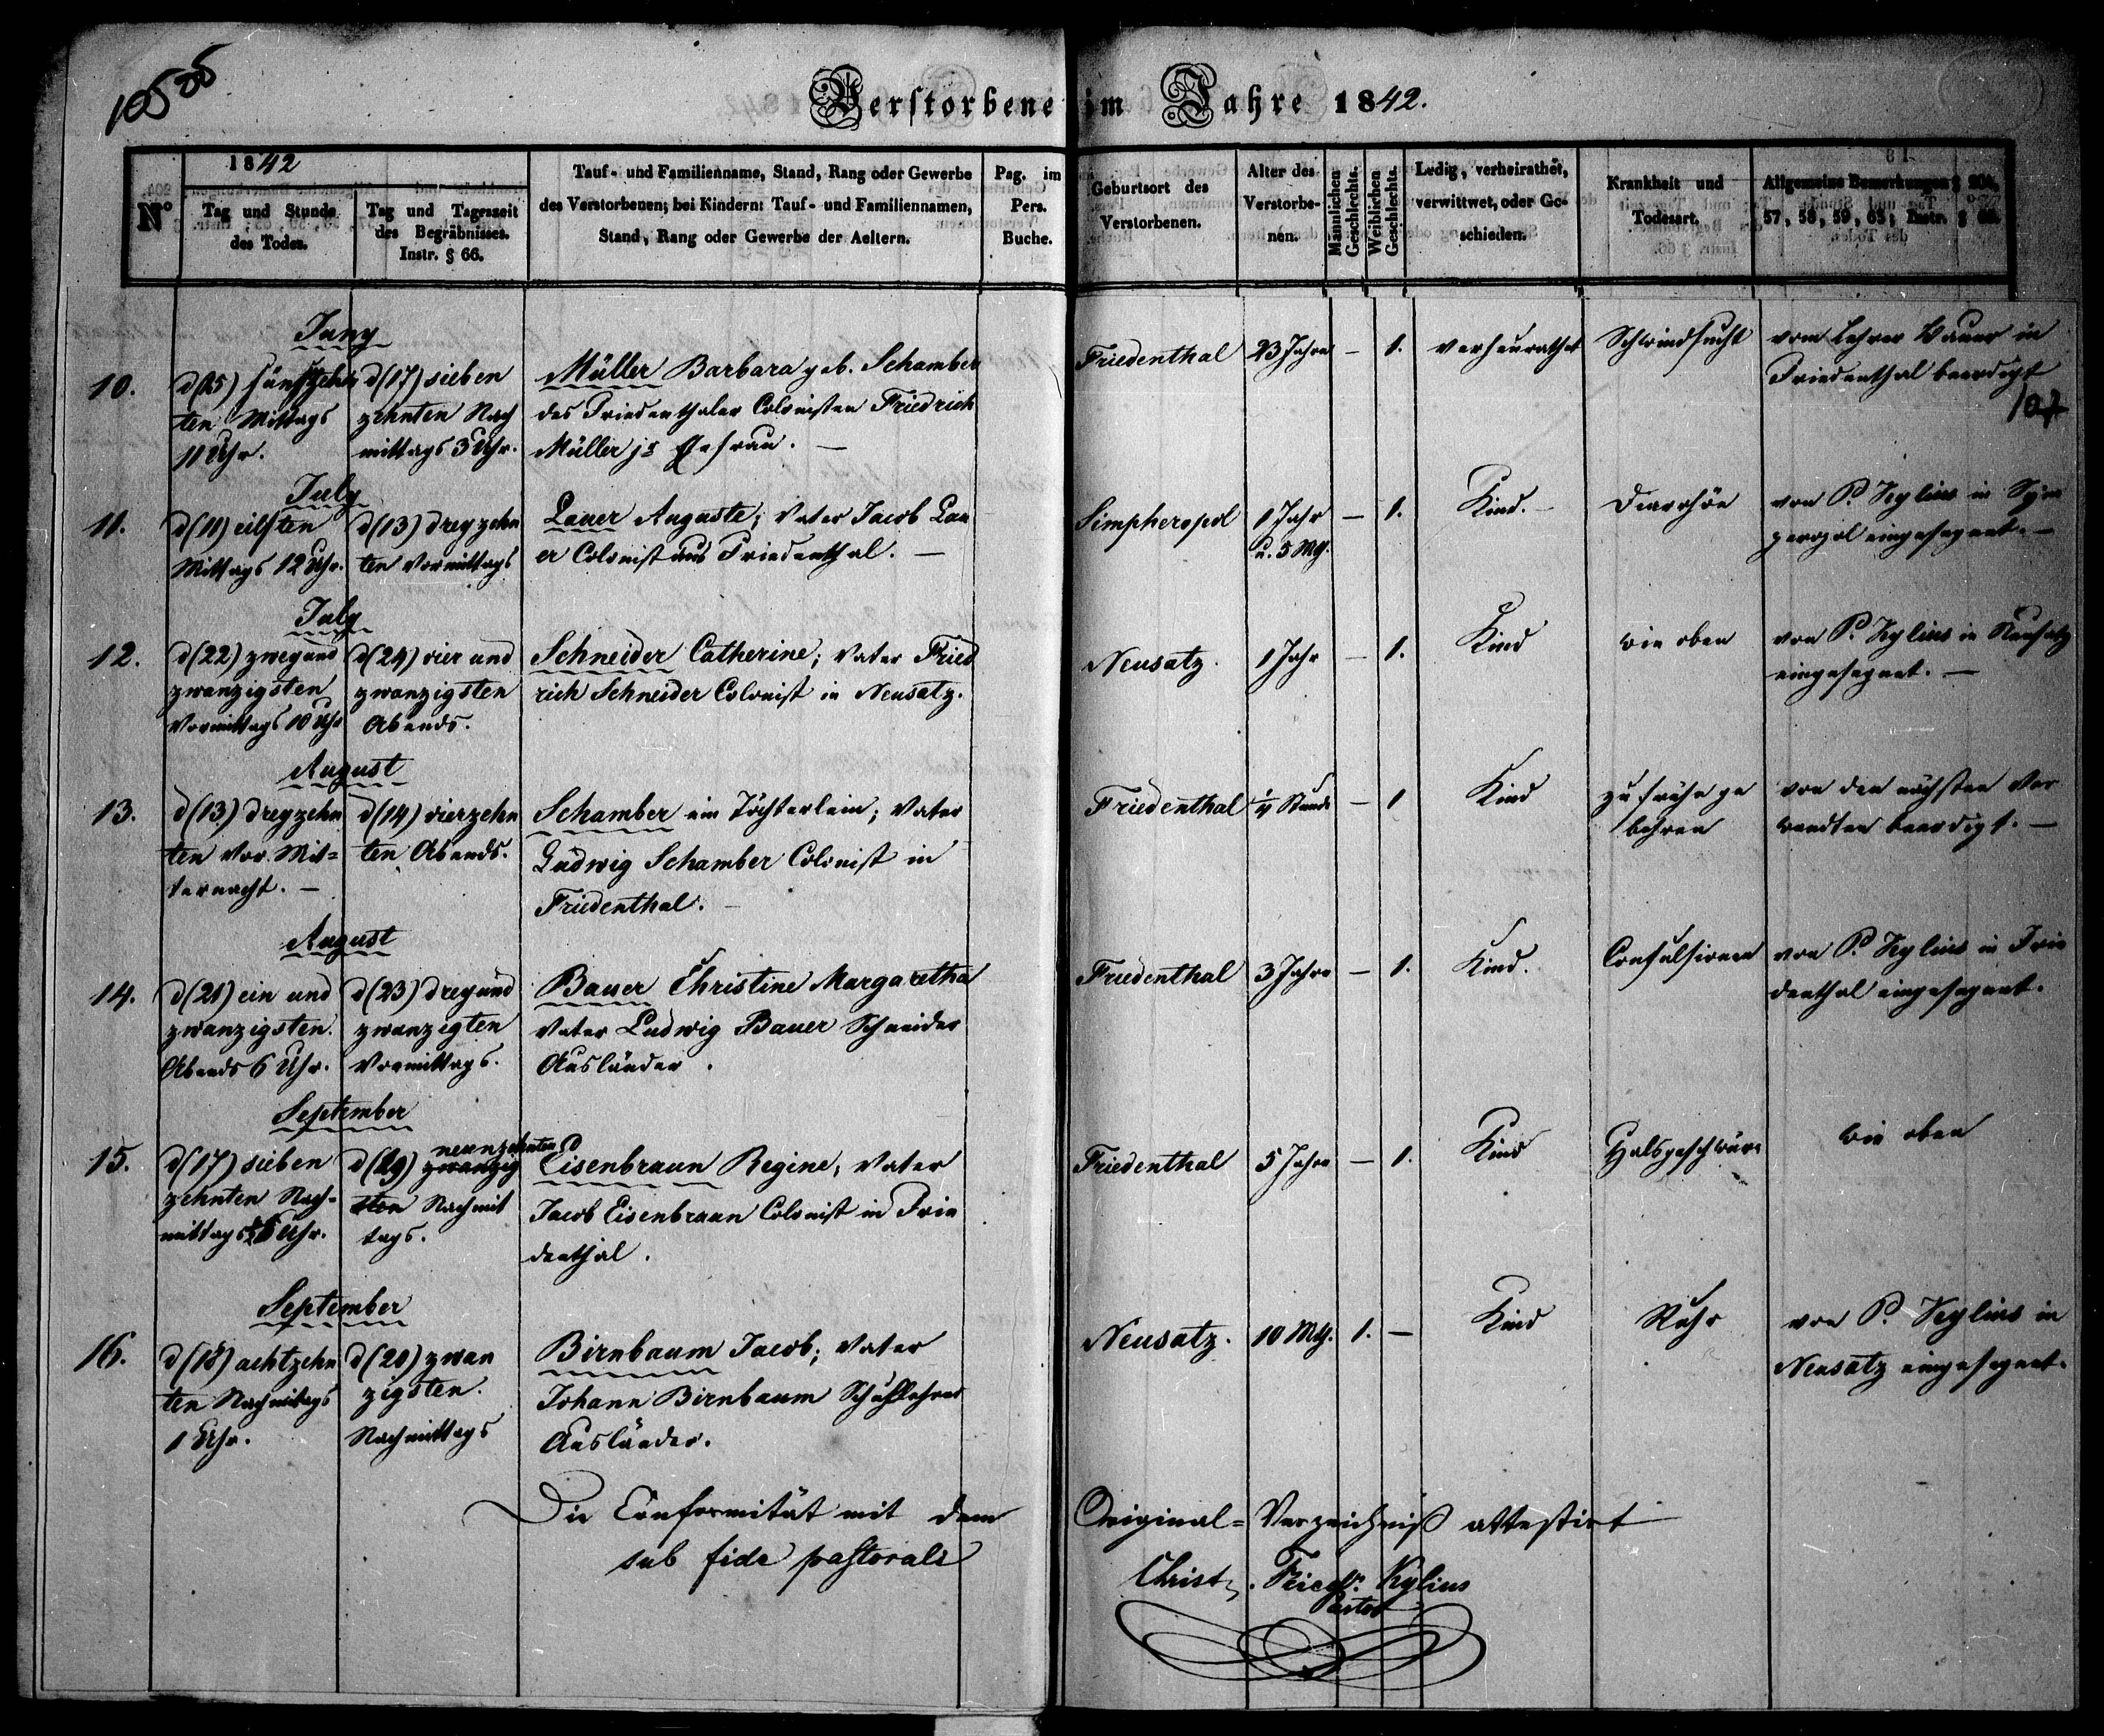 Verstorbene im Jahre 1842.
1842
N°
Tag und Stunde
des Todes.
Tag und Tageszeit
des Begräbnisses.
Instr. § 66.
Tauf- und Familienname, Stand, Rang oder Gewerbe
des Verstorbenen; bei Kindern: Tauf- und Familiennamen,
Stand, Rang oder Gewerbe der Aeltern.
Pag. im
Pers.
Buche.
Geburtsort des
Verstorbenen.
Alter des
Verstorbe-
nen.
Männlichen
Geschlechts.
Weiblichen
Geschlechts.
Ledig, verheirathet,
verwittwet, oder Ge-
schieden.
Krankheit und
Todesart.
Allgemeine Bemerkungen § 204,
57, 58, 59, 65; Instr. § 66.
Juny
10.
d(15) fünfzehn
ten Mittags
11 Uhr.
d(17) sieben
zehnten Nach
mittags 3 Uhr.
Müller Barbara geb. Schamber
des Friedenthaler Colonisten Friedrich
Müller jr Ehefrau. —
Friedenthal
23 Jahre
—
1.
verheurathet
Schwindsucht
vom Lehrer Bauer in
Friedenthal beerdigt
107
July
11.
d(11) eilften
Mittags 12 Uhr.
d(13) dreyzehn
ten Vormittags
Lauer Auguste; Vater Jacob Lau
er Colonist aus Friedenthal. —
Simpheropol
1 Jahr
u. 5 Mt.
—
1.
Kind. —
Diarrhöe
von P. Kylius in Sym
peropol eingesegnet. —
July
12.
d(22) zwey und
zwanzigsten
Vormittags 10 Uhr
d(24) vier und
zwanzigsten
Abends.
Schneider Catherine; Vater Fried
rich Schneider Colonist in Neusatz.
Neusatz.
1 Jahr
—
1.
Kind
wie oben
von P. Kylius in Neusatz
eingesegnet. —
August
13.
d(13) dreyzehn
ten vor Mit=
ternacht. —
d(14) vierzehn
ten Abends.
Schamber ein Töchterlein; Vater
Ludwig Schamber Colonist in
Friedenthal. —
Friedenthal
1/4 Stunde
—
1
Kind
zu frühe ge
bohren
von den nächsten Ver
wandten beerdigt. —
August
14.
d(21) ein und
zwanzigsten.
Abends 6 Uhr.
d(23) drey und
zwanzigten
Vormittags.
Bauer Christine Margaretha
Vater Ludwig Bauer Schneider
Ausländer.
Friedenthal
3 Jahre
—
1.
Kind.
Confulsionen
von P. Kylius in Frie
denthal eingesegnet.
September
15.
d(17) sieben
zehnten Nach=
mittags Uhr.
neunzehnten
d(19) zwanzig
sten Nachmit
tags.
Eisenbraun Regine; Vater
Jacob Eisenbraun Colonist in Frie
denthal.
Friedenthal
5 Jahre
—
1.
Kind
Halsgeschwüre
wie oben
September
16.
d(18) achtzehn
ten Nachmitags
1 Uhr.
d(20) zwan
zigsten.
Nachmittags
Birnbaum Jacob; Vater
Johann Birnbaum Schullehrer
Ausländer.
Neusatz.
10 Mt.
1.
—
Kind
Ruhr
von P. Kylius in
Neusatz eingesegnet.
Die Conformität mit dem Original=Verzeichniß attestirt
sub fide pastorali
Christ. Friedr. Kylius
Pastor